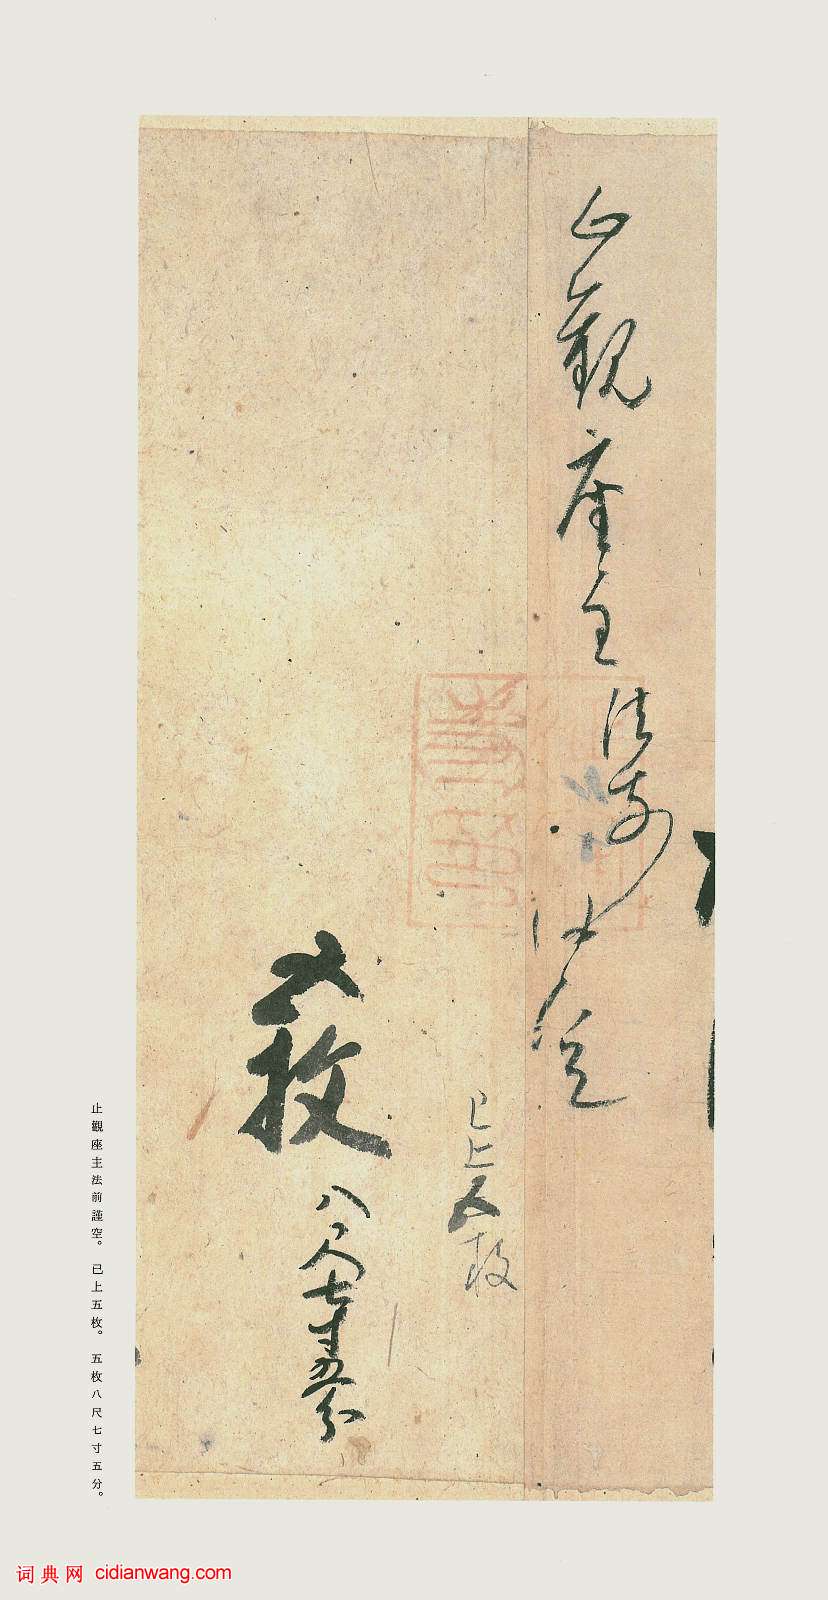 止觀座主法前
謹空
已上五枚
五枚
八尺七寸五分
止觀座主法前謹空。已上五枚。五枚八尺七寸五分。
词典网 cidianwang.com